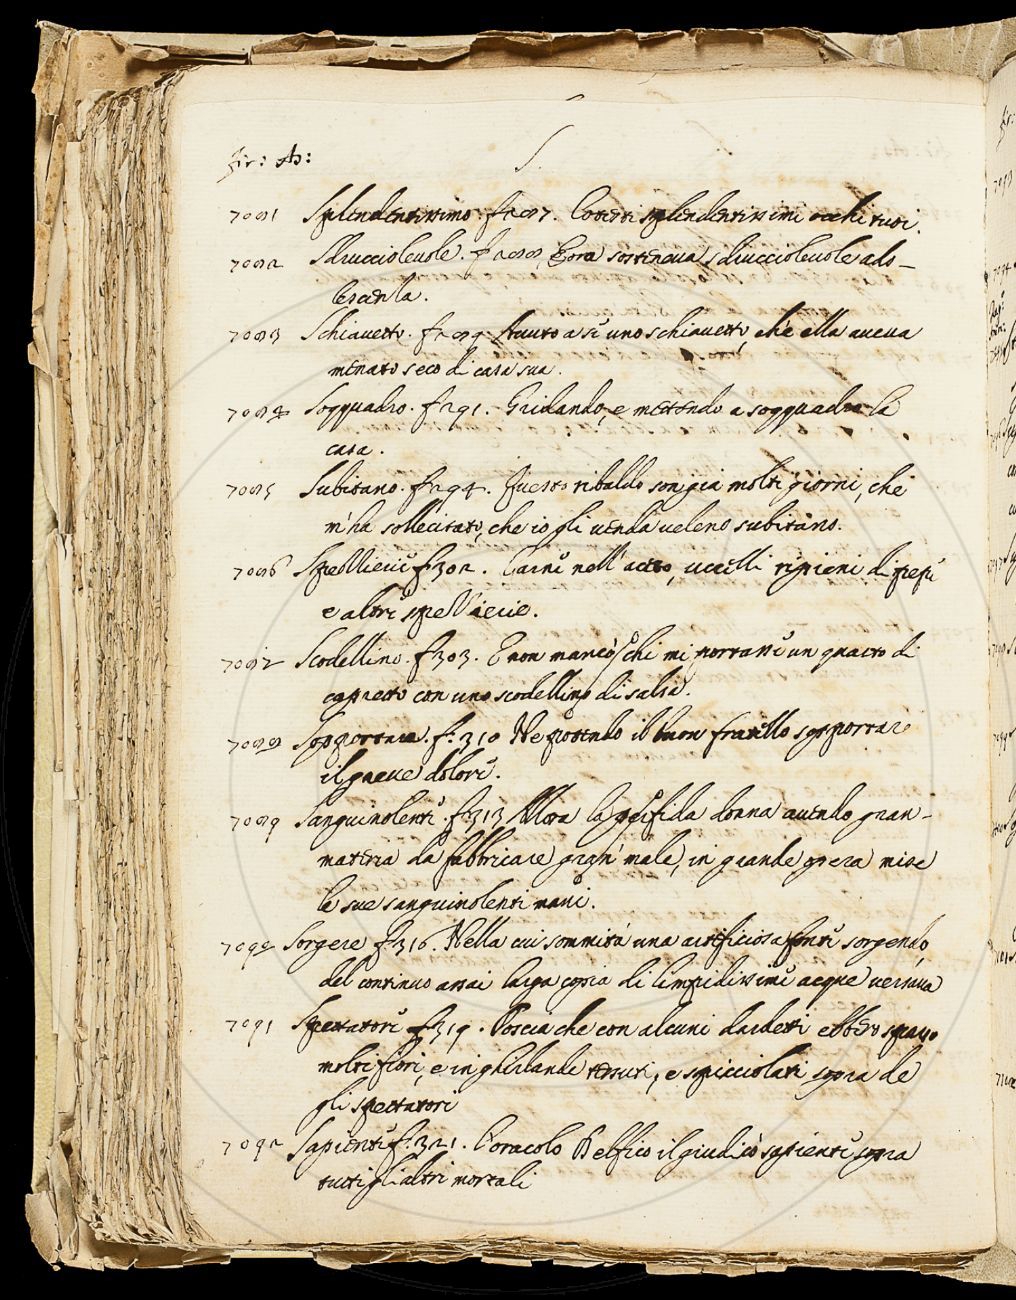 fir: A:
S.
7081 Splendentissimo. f. 287. Cotesti splendentissimi occhi tuoi.
7082 Sdrucciolevole. f. 288. sosteneva sdrucciolevole ado-
lescenla.
7083 Schiavetto. f. 289 Avuto a sè uno schiavetto, che ella aveva
menato seco di casa sua.
7084 Soqquadro. f. 291. Gridando, e metendo a soqquadro la
casa.
7085 Subitano. f. 294. Questo ribaldo son già molti giorni, che
m'ha sollecitato, che io gli venda veleno subitano.
7086 f. 302. Carni nell' aceto, uccelli ripieni di pepe
e altri
7087 Scodellino. f. 303. E non mancò chi mi portasse un quarto di
capretto con uno scodellino di salsa.
7088 Sopportare. f. 310 Ne potendo il buon fratello sopportare
il grave dolore.
7089 Sanguinolente. f. 313 Allora la perfida donna avendo gran-
materia da fabbricare gran male, in grande opera mise
le sue sanguinolenti mani.
7090 Sorgere f. 316. Nella cui sommità una artificiosa fonte sorgendo
del continuo assai larga copia di limpidissime acque versava
7091 Spettatore f. 319. Poscia che con alcuni dardetti ebbero
molti fiori, e in ghirlande tessuti, e spicciolati sopra de
gli spettatori
7092 Sapiente f. 321. L'oracolo Delfico il giudicò sapiente sopra
tutti gli altri mortali